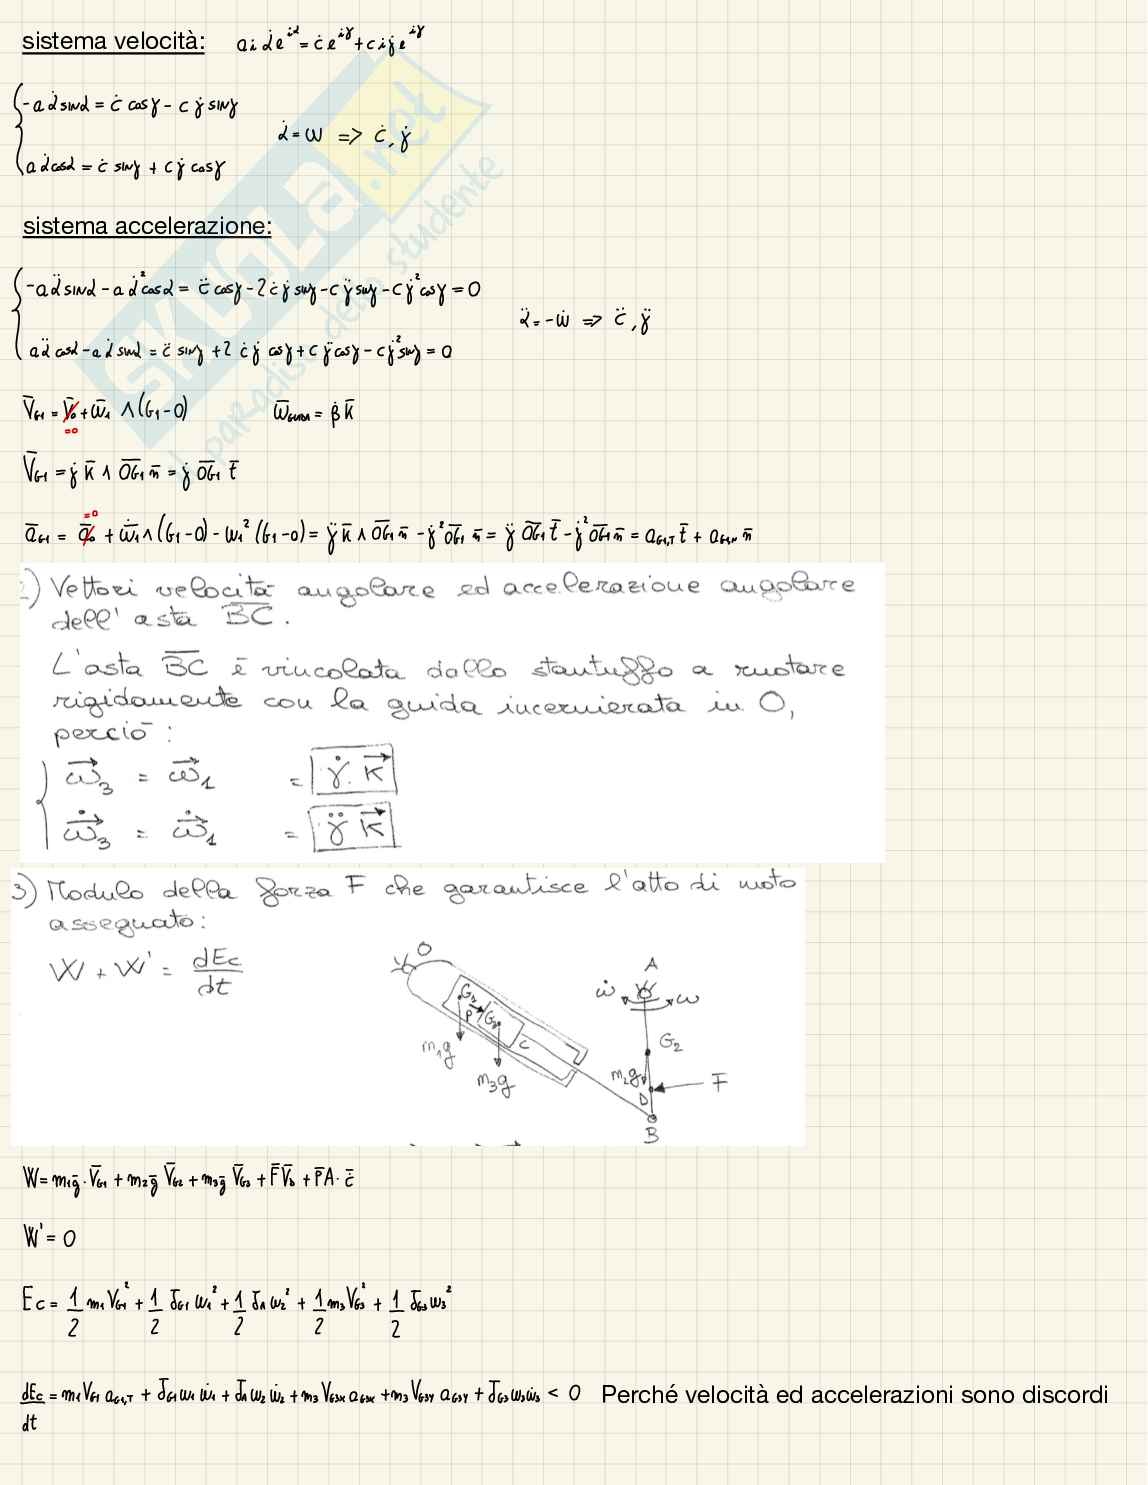 sistema velocità: a i α̇ e^{iα} = ċ e^{iγ} + c i γ̇ e^{iγ}
{ -a α̇ sinα = ċ cosγ - c γ̇ sinγ
α̇ = ω => ċ, γ̇
a α̇ cosα = ċ sinγ + c γ̇ cosγ
sistema accelerazione:
{ -a α̈ sinα - a α̇² cosα = c̈ cosγ - 2 ċ γ̇ sinγ - c γ̈ sinγ - c γ̇² cosγ = 0
α̈ = -ω̇ => c̈, γ̈
a α̈ cosα - a α̇ sinα = c̈ sinγ + 2 ċ γ̇ cosγ + c γ̈ cosγ - c γ̇² sinγ = 0
V̄G1 = V̄o + ω̄1 ∧ (G1-O)   ω̄GUIDA = β̇ k̄
=0
V̄G1 = γ̇ k̄ ∧ OG1 n̄ = γ̇ OG1 t̄
=0
āG1 = āo + ω̄̇1 ∧ (G1-O) - ω1² (G1-O) = γ̈ k̄ ∧ OG1 n̄ - γ̇² OG1 n̄ = γ̈ OG1 t̄ - γ̇² OG1 n̄ = aG1,T t̄ + aG1,N n̄
2) Vettori velocità angolare ed accelerazione angolare
dell'asta BC.
L'asta BC è vincolata dallo stantuffo a ruotare
rigidamente con la guida incernierata in O,
perciò:
{ ω⃗3 = ω⃗1 = γ̇ k⃗
ω⃗̇3 = ω⃗̇1 = γ̈ k⃗
3) Modulo della forza F che garantisce l'atto di moto
assegnato:
W + W' = dEc/dt
O
A
ω̇ ω
G3
P G1
C
G2
m1g
m3g
m2g
F
D
B
W = m1ḡ·V̄G1 + m2ḡ V̄G2 + m3ḡ V̄G3 + F̄ V̄D + P̄A·c̄̇
W' = 0
Ec = 1/2 m1 VG1² + 1/2 JG1 ω1² + 1/2 JA ω2² + 1/2 m3 VG3² + 1/2 JG3 ω3²
dEc/dt = m1 VG1 aG1,T + JG1 ω1 ω̇1 + JA ω2 ω̇2 + m3 VG3X aG3X + m3 VG3Y aG3Y + JG3 ω3 ω̇3 < 0 Perché velocità ed accelerazioni sono discordi
SKUOLA.net
il paradiso dello studente